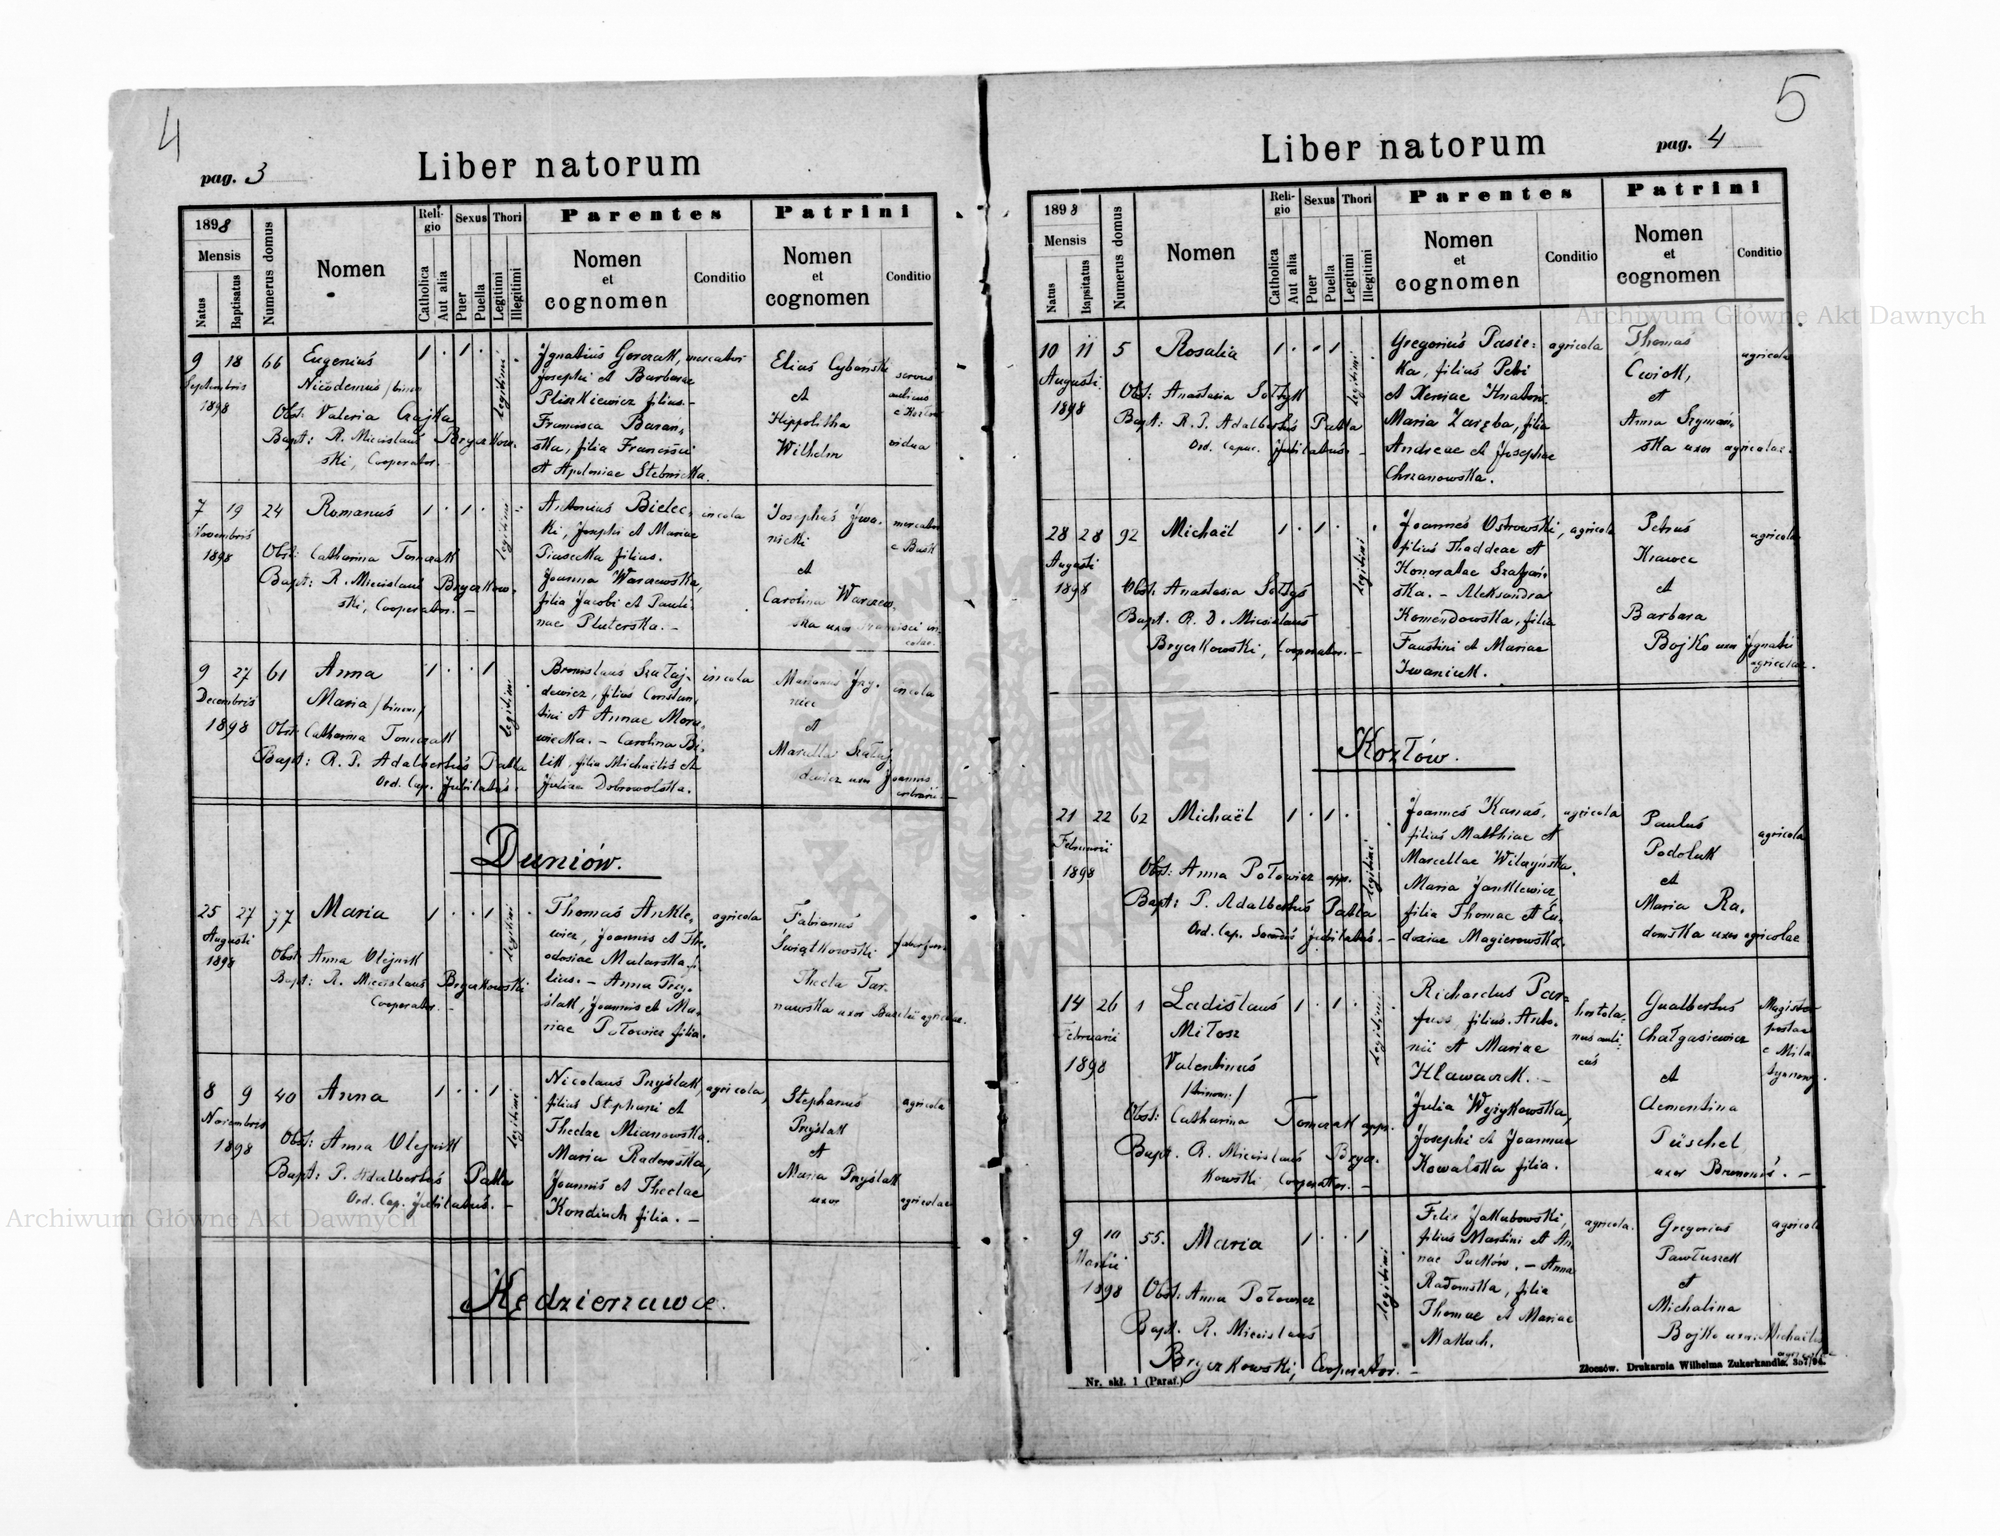 4
pag. 3
Liber natorum
1898
Mensis
Natus
Baptisatus
Numerus domus
Nomen
Religio
Catholica
Aut alia
Sexus
Puer
Puella
Thori
Legitimi
Illegitimi
Parentes
Nomen
et
cognomen
Conditio
Patrini
Nomen
et
cognomen
Conditio
9 18 66 Eugenius 1 . 1 .
Septembris
1898
Nicodemus /binom
Obst: Valeria Czajka
Bapt: R. Miecislaus Bryczkow-
ski, Cooperator. -
legitimi
Ignatius Gorczak, mercator
Josephi et Barbarae
Pliszkiewicz filius. -
Francisca Baran-
ska, filia Francisci
et Apoloniae Stebnicka.
Elias Cybański
et
Hippolitha
Wilhelm
servus
aulicus
vidua
7 19 24 Romanus 1 . 1 .
Novembris
1898
Obst: Catharina Tomczak
Bapt: R. Miecislaus Bryczkow-
ski, Cooperator. -
legitimi
Antonius Bielec- incola
ki, Josephi et Mariae
Piasecka filius.
Joanna Warzewska,
filia Jacobi et Pauli-
nae Pluterska. -
Josephus Iwa-
nicki
et
Carolina Warzew-
ska uxor Francisci in-
colae.
mercator
e Busk
9 27 61 Anna 1 . . 1
Decembris
1898
Maria /binom/
Obst: Catharina Tomczak
Bapt: R. P. Adalbertus Patla
Ord. Cap. Jubilatus. -
legitimi
Bronislaus Szałaj- incola
dewicz, filius Constan-
tini et Annae Mora-
wiecka. - Carolina Bi-
lik, filia Michaëlis et
Julian Dobrowolska.
et
Marcella Szałaj-
dewicz uxor Joannis
incola
Duniów.
25 27 77 Maria 1 . . 1
Augusti
1898
Obst: Anna Olejnik
Bapt: R. Miecislaus Bryczkowski
Cooperator. -
legitimi
Thomas Ankle- agricola
wicz, Joannis et The-
odosiae Malarska fi-
lius. - Anna Przy-
ślak, Joannis et Ma-
riae Połowicz filia.
Fabianus
Świątkowski
Thecla Tar-
nawska uxor Basilii agricolae.
8 9 40 Anna 1 . . 1
Novembris
1898
Obst: Anna Olejnik
Bapt: P. Adalbertus Patla
Ord. Cap. Jubilatus. -
legitimi
Nicolaus Przyślak, agricola,
filius Stephani et
Theclae Mianowska.
Maria Radomska,
Joannis et Theclae
Kondiuch filia. -
Stephanus
Przyślak
et
Maria Przyślak
uxor agricolae
agricola
Kędzierzawce.
5
Liber natorum
pag. 4
1898
Mensis
Natus
Bapsitatus
Numerus domus
Nomen
Religio
Catholica
Aut alia
Sexus
Puer
Puella
Thori
Legitimi
Illegitimi
Parentes
Nomen
et
cognomen
Conditio
Patrini
Nomen
et
cognomen
Conditio
10 11 5 Rosalia 1 . . 1
Augusti
1898
Obst: Anastasia Sołtyk
Bapt: R. P. Adalbertus Patla
Ord. Capuc. Jubilatus. -
legitimi
Gregorius Pasie- agricola
ka, filius Petri
et Xeniae Hnatów.
Maria Zaręba, filia
Andreae et Josephae
Chrzanowska.
Thomas
Ćwiok,
et
Anna Szymań-
ska uxor agricolae.
agricola
28 28 92 Michaël 1 . 1 .
Augusti
1898
Obst: Anastasia Sołtys
Bapt. R. D. Miecislaus
Bryczkowski, Cooperator. -
legitimi
Joannes Ostrowski, agricola
filius Thaddeae et
Honoratae Szatyań-
ska. - Aleksandra
Komendowska, filia
Faustini et Mariae
Iwaniuk.
Petrus
Krawec
et
Barbara
Bojko uxor Ignatii
agricolae.
agricola
Kozłów.
21 22 62 Michaël 1 . 1 .
Februarii
1898
Obst: Anna Połowicz app.
Bapt: P. Adalbertus Patla
Ord. Cap. Jubilatus. -
legitimi
Joannes Kanas, agricola
filius Matthiae et
Marcellae Wilczyńska.
Maria Janklewicz
filia Thomae et Eu-
doxiae Magierowska.
Paulus
Podoluk
et
Maria Ra-
domska uxor agricolae
agricola
14 26 1 Ladislaus 1 . 1 .
Februarii
1898
Miłosz
Valentinus
/binom:/
Obst: Catharina Tomczak app.
Bapt. R. Miecislaus Brycz-
kowski Cooperator. -
legitimi
filius. Anto-
nii et Mariae
Hlawaczk. -
Julia Wyżykowska,
Josephi et Joannae
Kowalska filia.
hortola-
nus auli-
cus
Gualbertus
Chałgasiewicz
et
Clementina
Püschel,
uxor Brunonis. -
Magister
postae
9 10 55. Maria 1 . . 1
Martii
1898
Obst: Anna Połowicz
Bapt. R. Miecislaus
Bryczkowski, Cooperator. -
legitimi
Felix Jakubowski, agricola.
filius Martini et An-
nae Puchów. - Anna
Radomska, filia
Thomae et Mariae
Makuch.
Gregorius
Pawłuszek
et
Michalina
Bojko uxor Michaëlis
agricolae
agricola
Nr. skł. 1 (Paraf.)
Złoczów. Drukarnia Wilhelma Zukerkandla. 357/94.
Archiwum Główne Akt Dawnych
Archiwum Główne Akt Dawnych